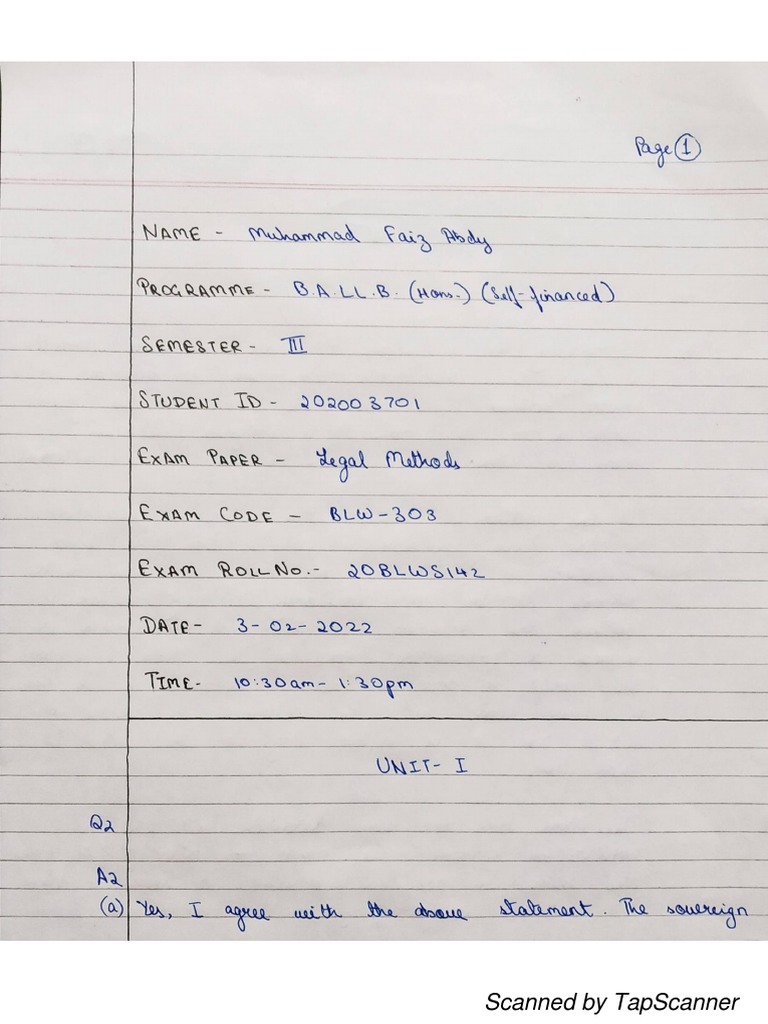 Page 1
NAME - Muhammad Faiz Abdy
PROGRAMME - B.A.LL.B. (Hons.) (Self-financed)
SEMESTER - III
STUDENT ID - 202003701
EXAM PAPER - Legal Methods
EXAM CODE - BLW-303
EXAM ROLL NO.- 20BLWS142
DATE- 3-02-2022
TIME- 10:30am- 1:30pm
UNIT- I
Q2
A2
(a) Yes, I agree with the above statement. The sovereign
Scanned by TapScanner